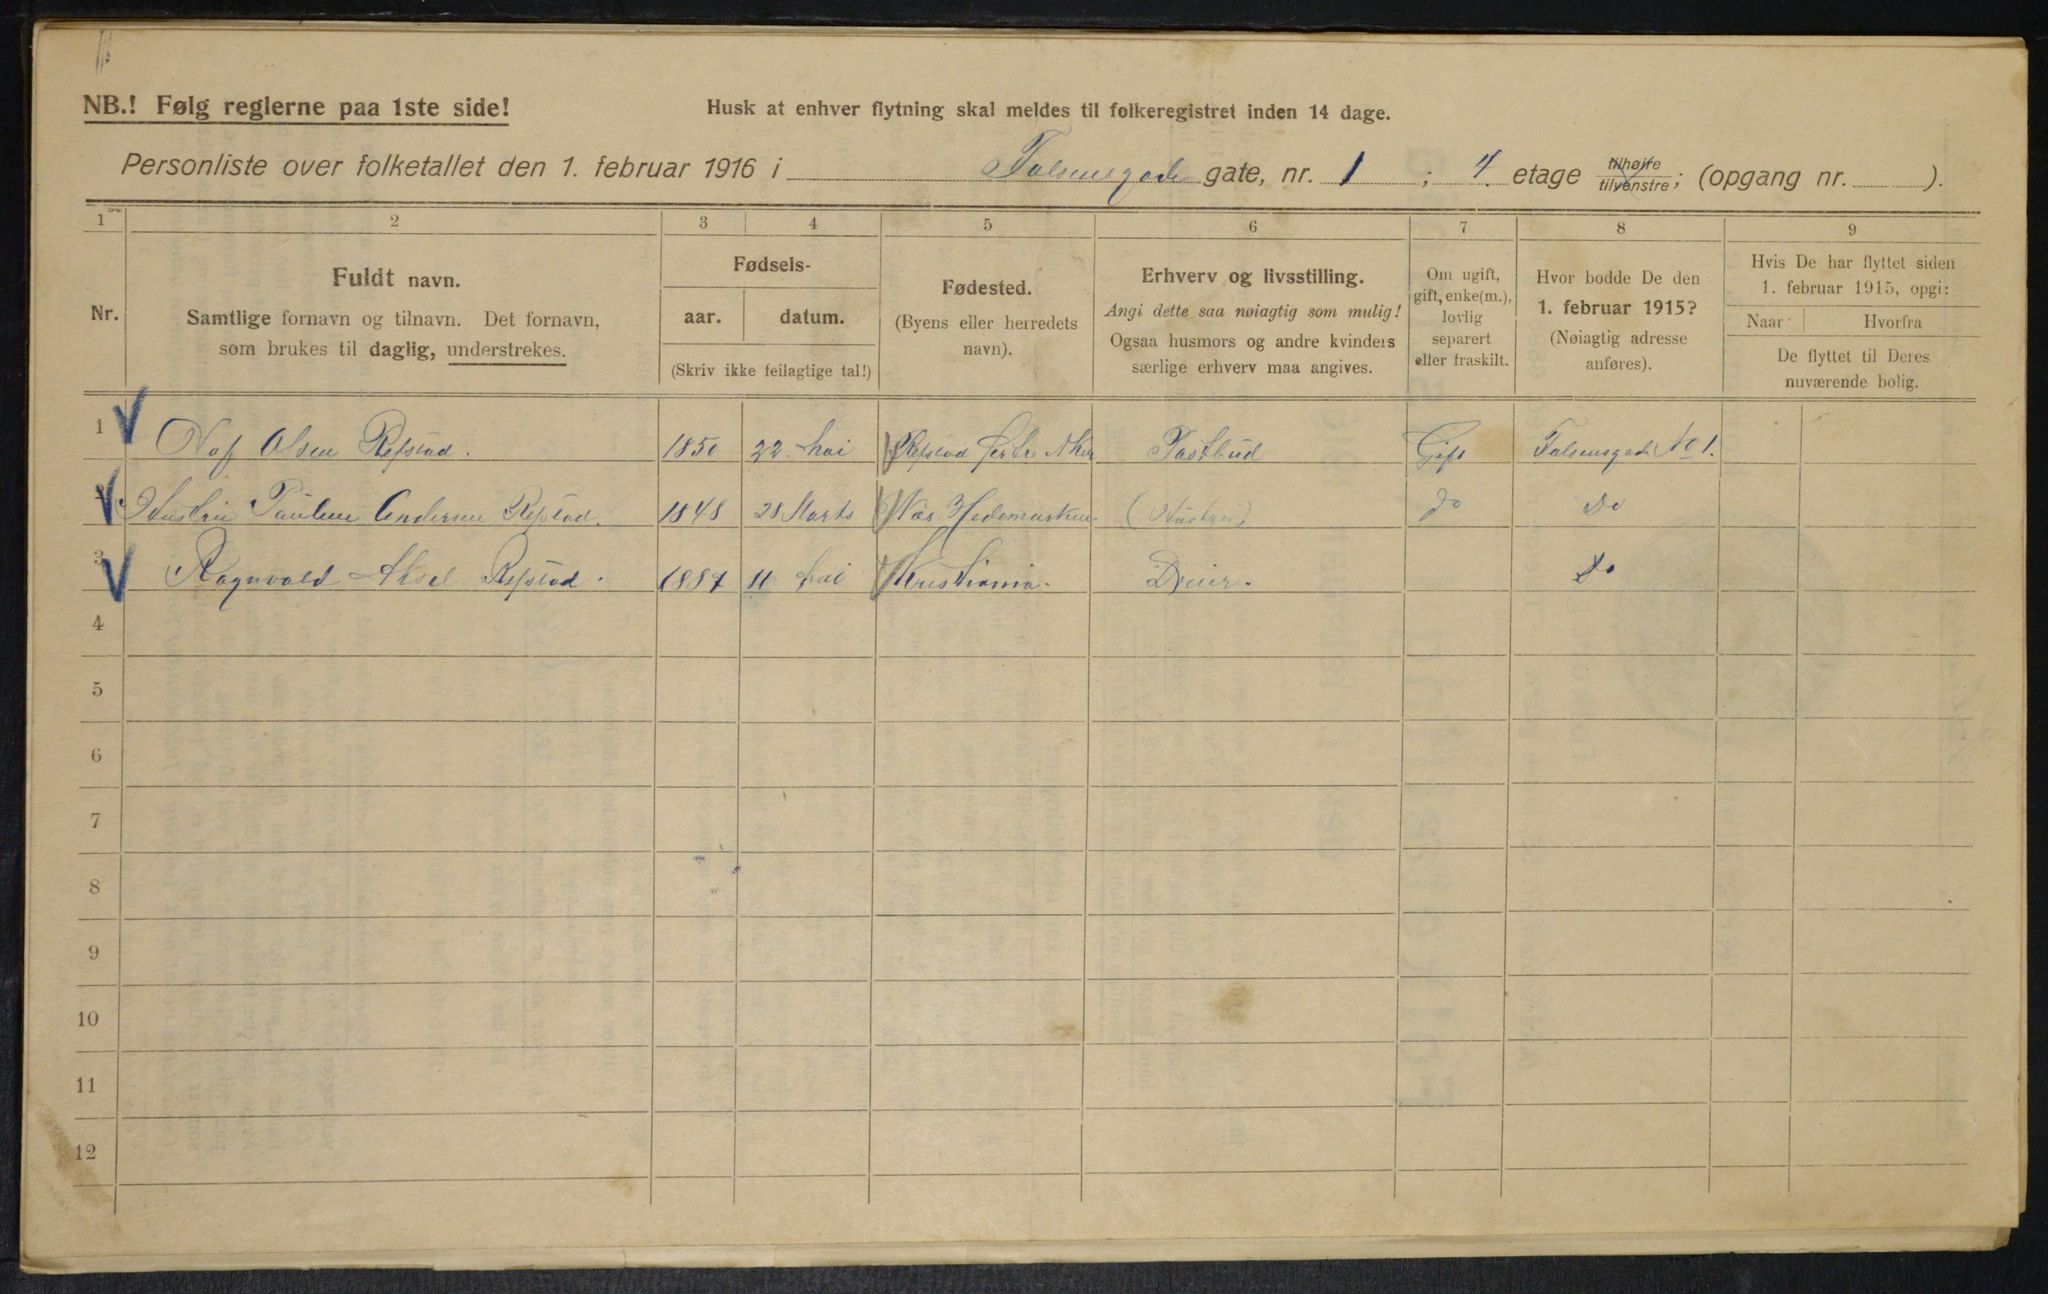 NB.! Følg reglerne paa 1ste side!
Husk at enhver flytning skal meldes til folkeregistret inden 14 dage.
Personliste over folketallet den 1. februar 1916 i Falsensgade gate, nr. 1 ; 4 etage tilhøire tilvenstre; (opgang nr. ).
1 2 3 4 5 6 7 8 9
Nr.
Fuldt navn.
Samtlige fornavn og tilnavn. Det fornavn,
som brukes til daglig, understrekes.
Fødsels-
aar. datum.
(Skriv ikke feilagtige tal!)
Fødested.
(Byens eller herredets
navn).
Erhverv og livsstilling.
Angi dette saa nøiagtig som mulig!
Ogsaa husmors og andre kvinders
særlige erhverv maa angives.
Om ugift,
gift, enke(m.),
lovlig
separert
eller fraskilt.
Hvor bodde De den
1. februar 1915?
(Nøiagtig adresse
anføres).
Hvis De har flyttet siden
1. februar 1915, opgi:
Naar Hvorfra
De flyttet til Deres
nuværende bolig.
1 Olaf Olsen Refstad. 1850 22 Mai Refstad Aker Postbud Gift Falsensgade No 1.
2 Hustru Pauline Andersen Refstad. 1848 28 Marts Næs Hedemarken (Hustru) do Do
3 Ragnvald Aksel Refstad. 1887 11 Mai Kristiania. Dreier. do
4
5
6
7
8
9
10
11
12